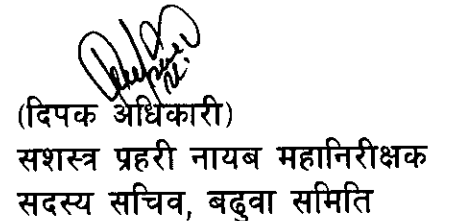 (दिपक अधिकारी)
सशस्त्र प्रहरी नायब महानिरीक्षक
सदस्य सचिव, बढुवा समिति